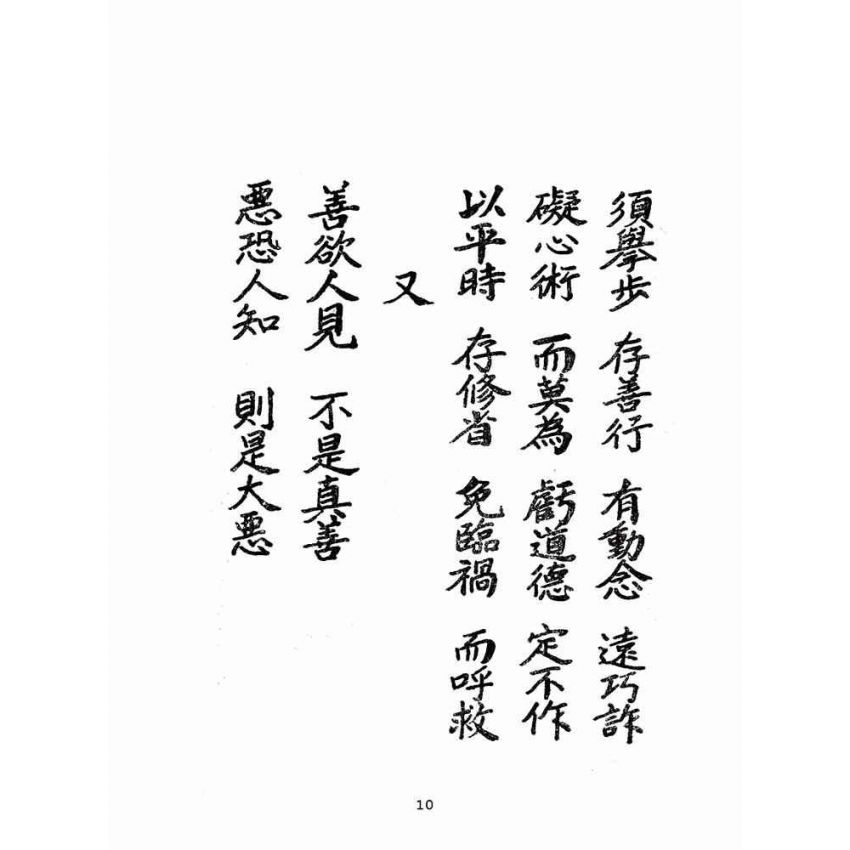 須舉步 存善行 有動念 遠巧詐
礙心術 而莫為 虧道德 定不作
以平時 存修省 免臨禍 而呼救
又
善欲人見 不是真善
惡恐人知 則是大惡
10